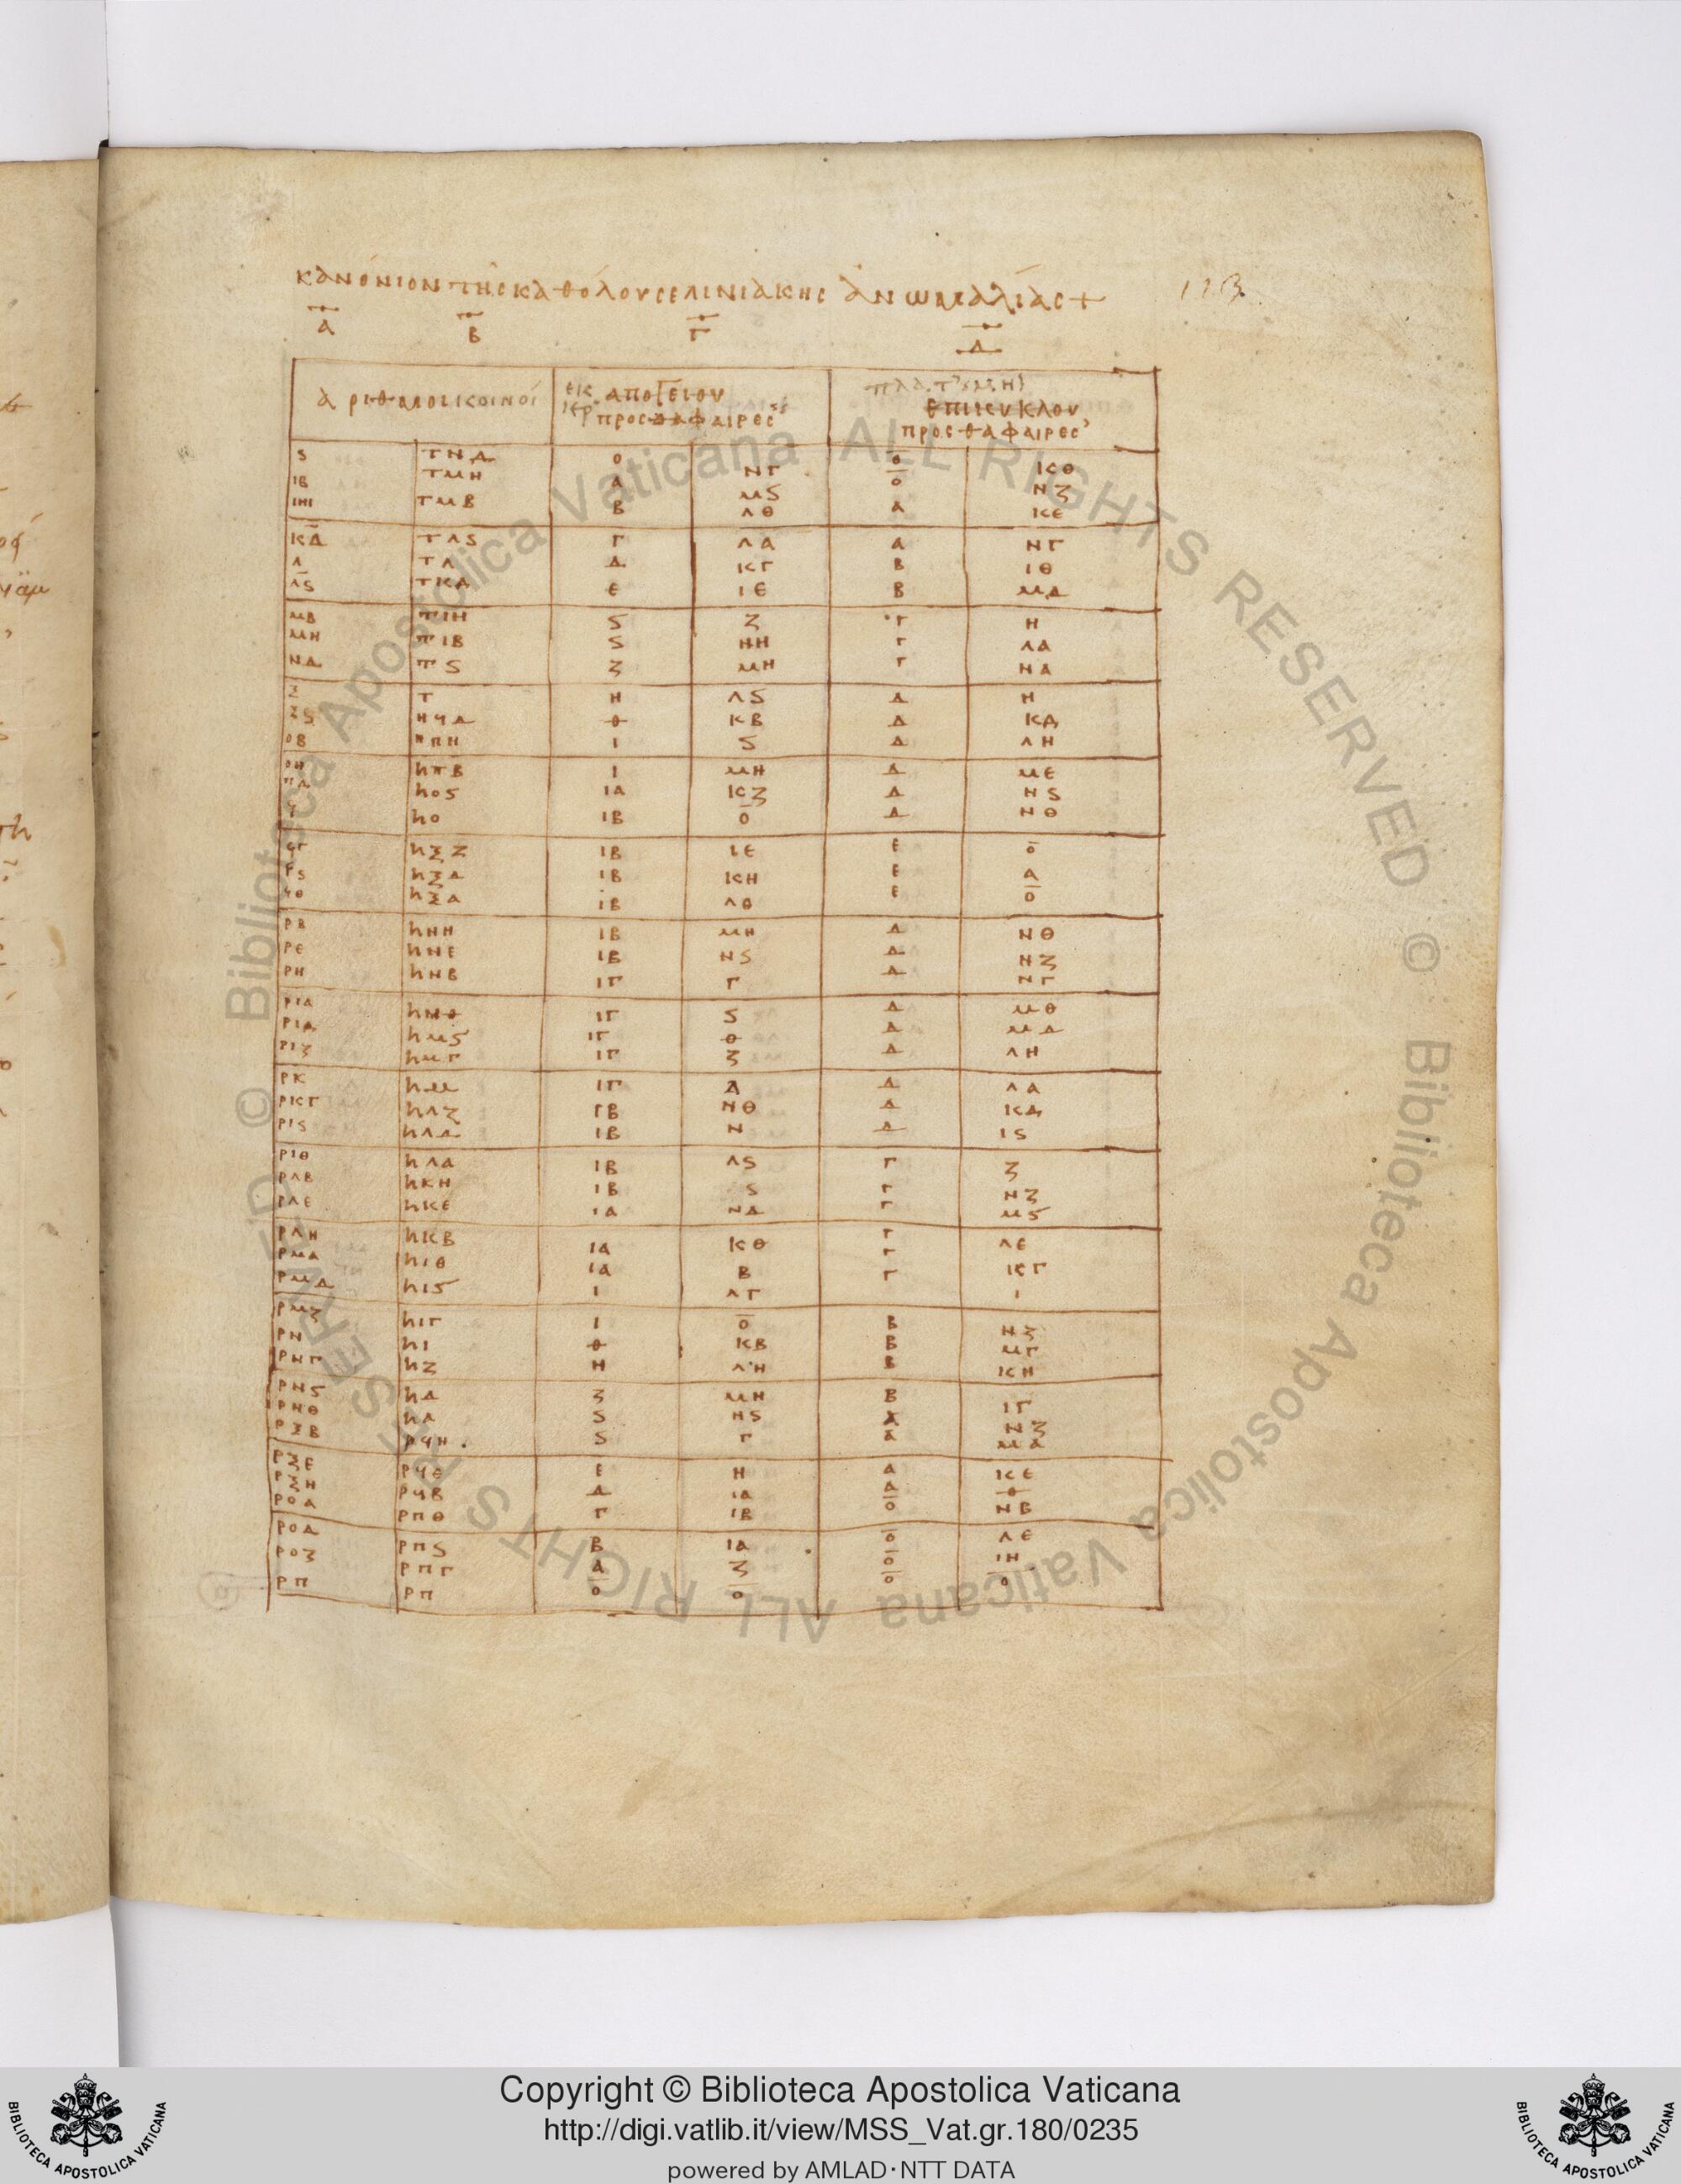 κανόνιον τῆς καθόλου σελινιακης ἀνωμαλίας +
Α Β Γ Δ
ἀριθμοι κοινοί
ἀπογείου
προσθαφαιρες
ἐπικυκλου
προσθαφαιρες
ς τνδ ο νγ ο κθ
ιβ τμη α μς ο νζ
ιηι τμβ β λθ α κε
κδ τλς γ λα α νγ
λ τλ δ κγ β ιθ
λς τκδ ε ιε β μδ
μβ τιη ς ζ γ η
μη τιβ ς νη γ λα
νδ τς ζ μη γ να
ξ τ η λς δ η
ξς ϟδ θ κβ δ κδ
οβ πη ι ς δ λη
οη ϲπβ ι μη δ με
πδ ϲος ια κζ δ νς
ϟ ϲο ιβ ο δ νθ
ϟγ ϲξζ ιβ ιε ε ο
ϟς ϲξδ ιβ κη ε α
ϟθ ϲξα ιβ λθ ε ο
ρβ ϲνη ιβ μη δ νθ
ρε ϲνε ιβ νς δ νζ
ρη ϲνβ ιγ γ δ νγ
ρια ϲμθ ιγ ς δ μθ
ριδ ϲμς ιγ θ δ μδ
ριζ ϲμγ ιγ ζ δ λη
ρκ ϲμ ιγ δ δ λα
ρκγ ϲλζ ιβ νθ δ κδ
ρις ϲλδ ιβ ν δ ις
ριθ ϲλα ιβ λς γ ζ
ρλβ ϲκη ιβ ς γ νζ
ρλε ϲκε ια νδ γ μς
ρλη ϲκβ ια κθ γ λε
ρμα ϲιθ ια β γ κγ
ρμδ ϲις ι λγ γ ι
ρμζ ϲιγ ι ο β νζ
ρν ϲι θ κβ β μγ
ρνγ ϲζ η λη β κη
ρνς ϲδ ζ μη β ιγ
ρνθ ϲα ς νς α νζ
ρξβ ρϟη ς γ α μα
ρξε ρϟε ε η α κε
ρξη ρϟβ δ ια α θ
ροα ρπθ γ ιβ ο νβ
ροδ ρπς β ια ο λε
ροζ ρπγ α ζ ο ιη
ρπ ρπ ο ο ο ο
Copyright © Biblioteca Apostolica Vaticana
http://digi.vatlib.it/view/MSS_Vat.gr.180/0235
powered by AMLAD·NTT DATA
BIBLIOTECA APOSTOLICA VATICANA
BIBLIOTECA APOSTOLICA VATICANA
© Biblioteca Apostolica Vaticana ALL RIGHTS RESERVED
© Biblioteca Apostolica Vaticana ALL RIGHTS RESERVED